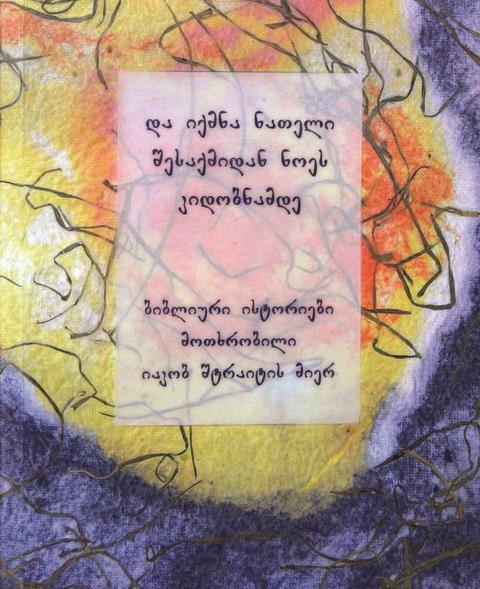 და იქმნა ნათელი
შესაქმიდან ნოეს
კიდობნამდე
ბიბლიური ისტორიები
მოთხრობილი
იაკობ შტრაიტის მიერ